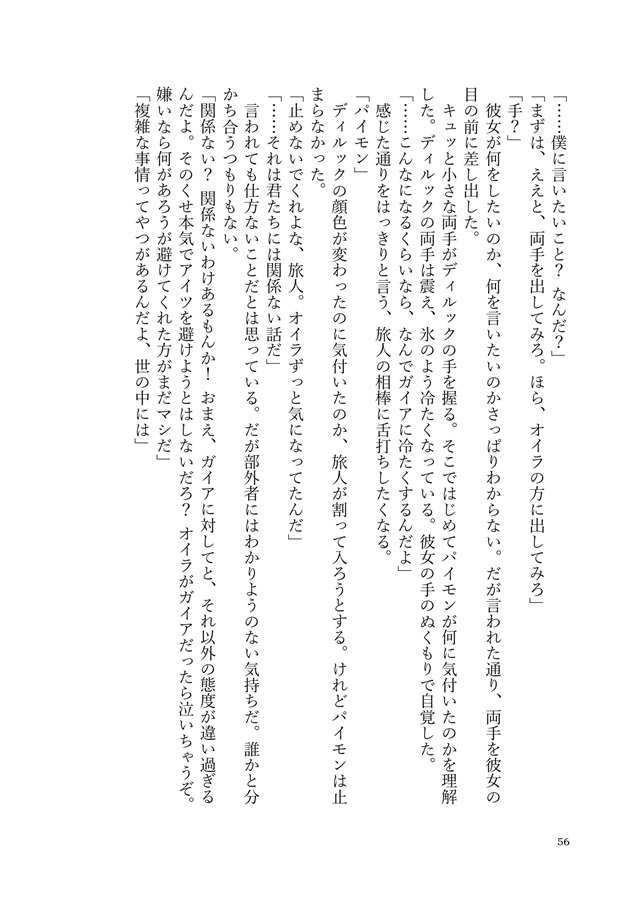 「……僕に言いたいこと？　なんだ？」
「まずは、ええと、両手を出してみろ。ほら、オイラの方に出してみろ」
「手？」
　彼女が何をしたいのか、何を言いたいのかさっぱりわからない。だが言われた通り、両手を彼女の
目の前に差し出した。
　キュッと小さな両手がディルックの手を握る。そこではじめてパイモンが何に気付いたのかを理解
した。ディルックの両手は震え、氷のよう冷たくなっている。彼女の手のぬくもりで自覚した。
「……こんなになるくらいなら、なんでガイアに冷たくするんだよ」
　感じた通りをはっきりと言う、旅人の相棒に舌打ちしたくなる。
「パイモン」
　ディルックの顔色が変わったのに気付いたのか、旅人が割って入ろうとする。けれどパイモンは止
まらなかった。
「止めないでくれよな、旅人。オイラずっと気になってたんだ」
「……それは君たちには関係ない話だ」
　言われても仕方ないことだとは思っている。だが部外者にはわかりようのない気持ちだ。誰かと分
かち合うつもりもない。
「関係ない？　関係ないわけあるもんか！　おまえ、ガイアに対してと、それ以外の態度が違い過ぎる
んだよ。そのくせ本気でアイツを避けようとはしないだろ？　オイラがガイアだったら泣いちゃうぞ。
嫌いなら何があろうが避けてくれた方がまだマシだ」
「複雑な事情ってやつがあるんだよ、世の中には」
56